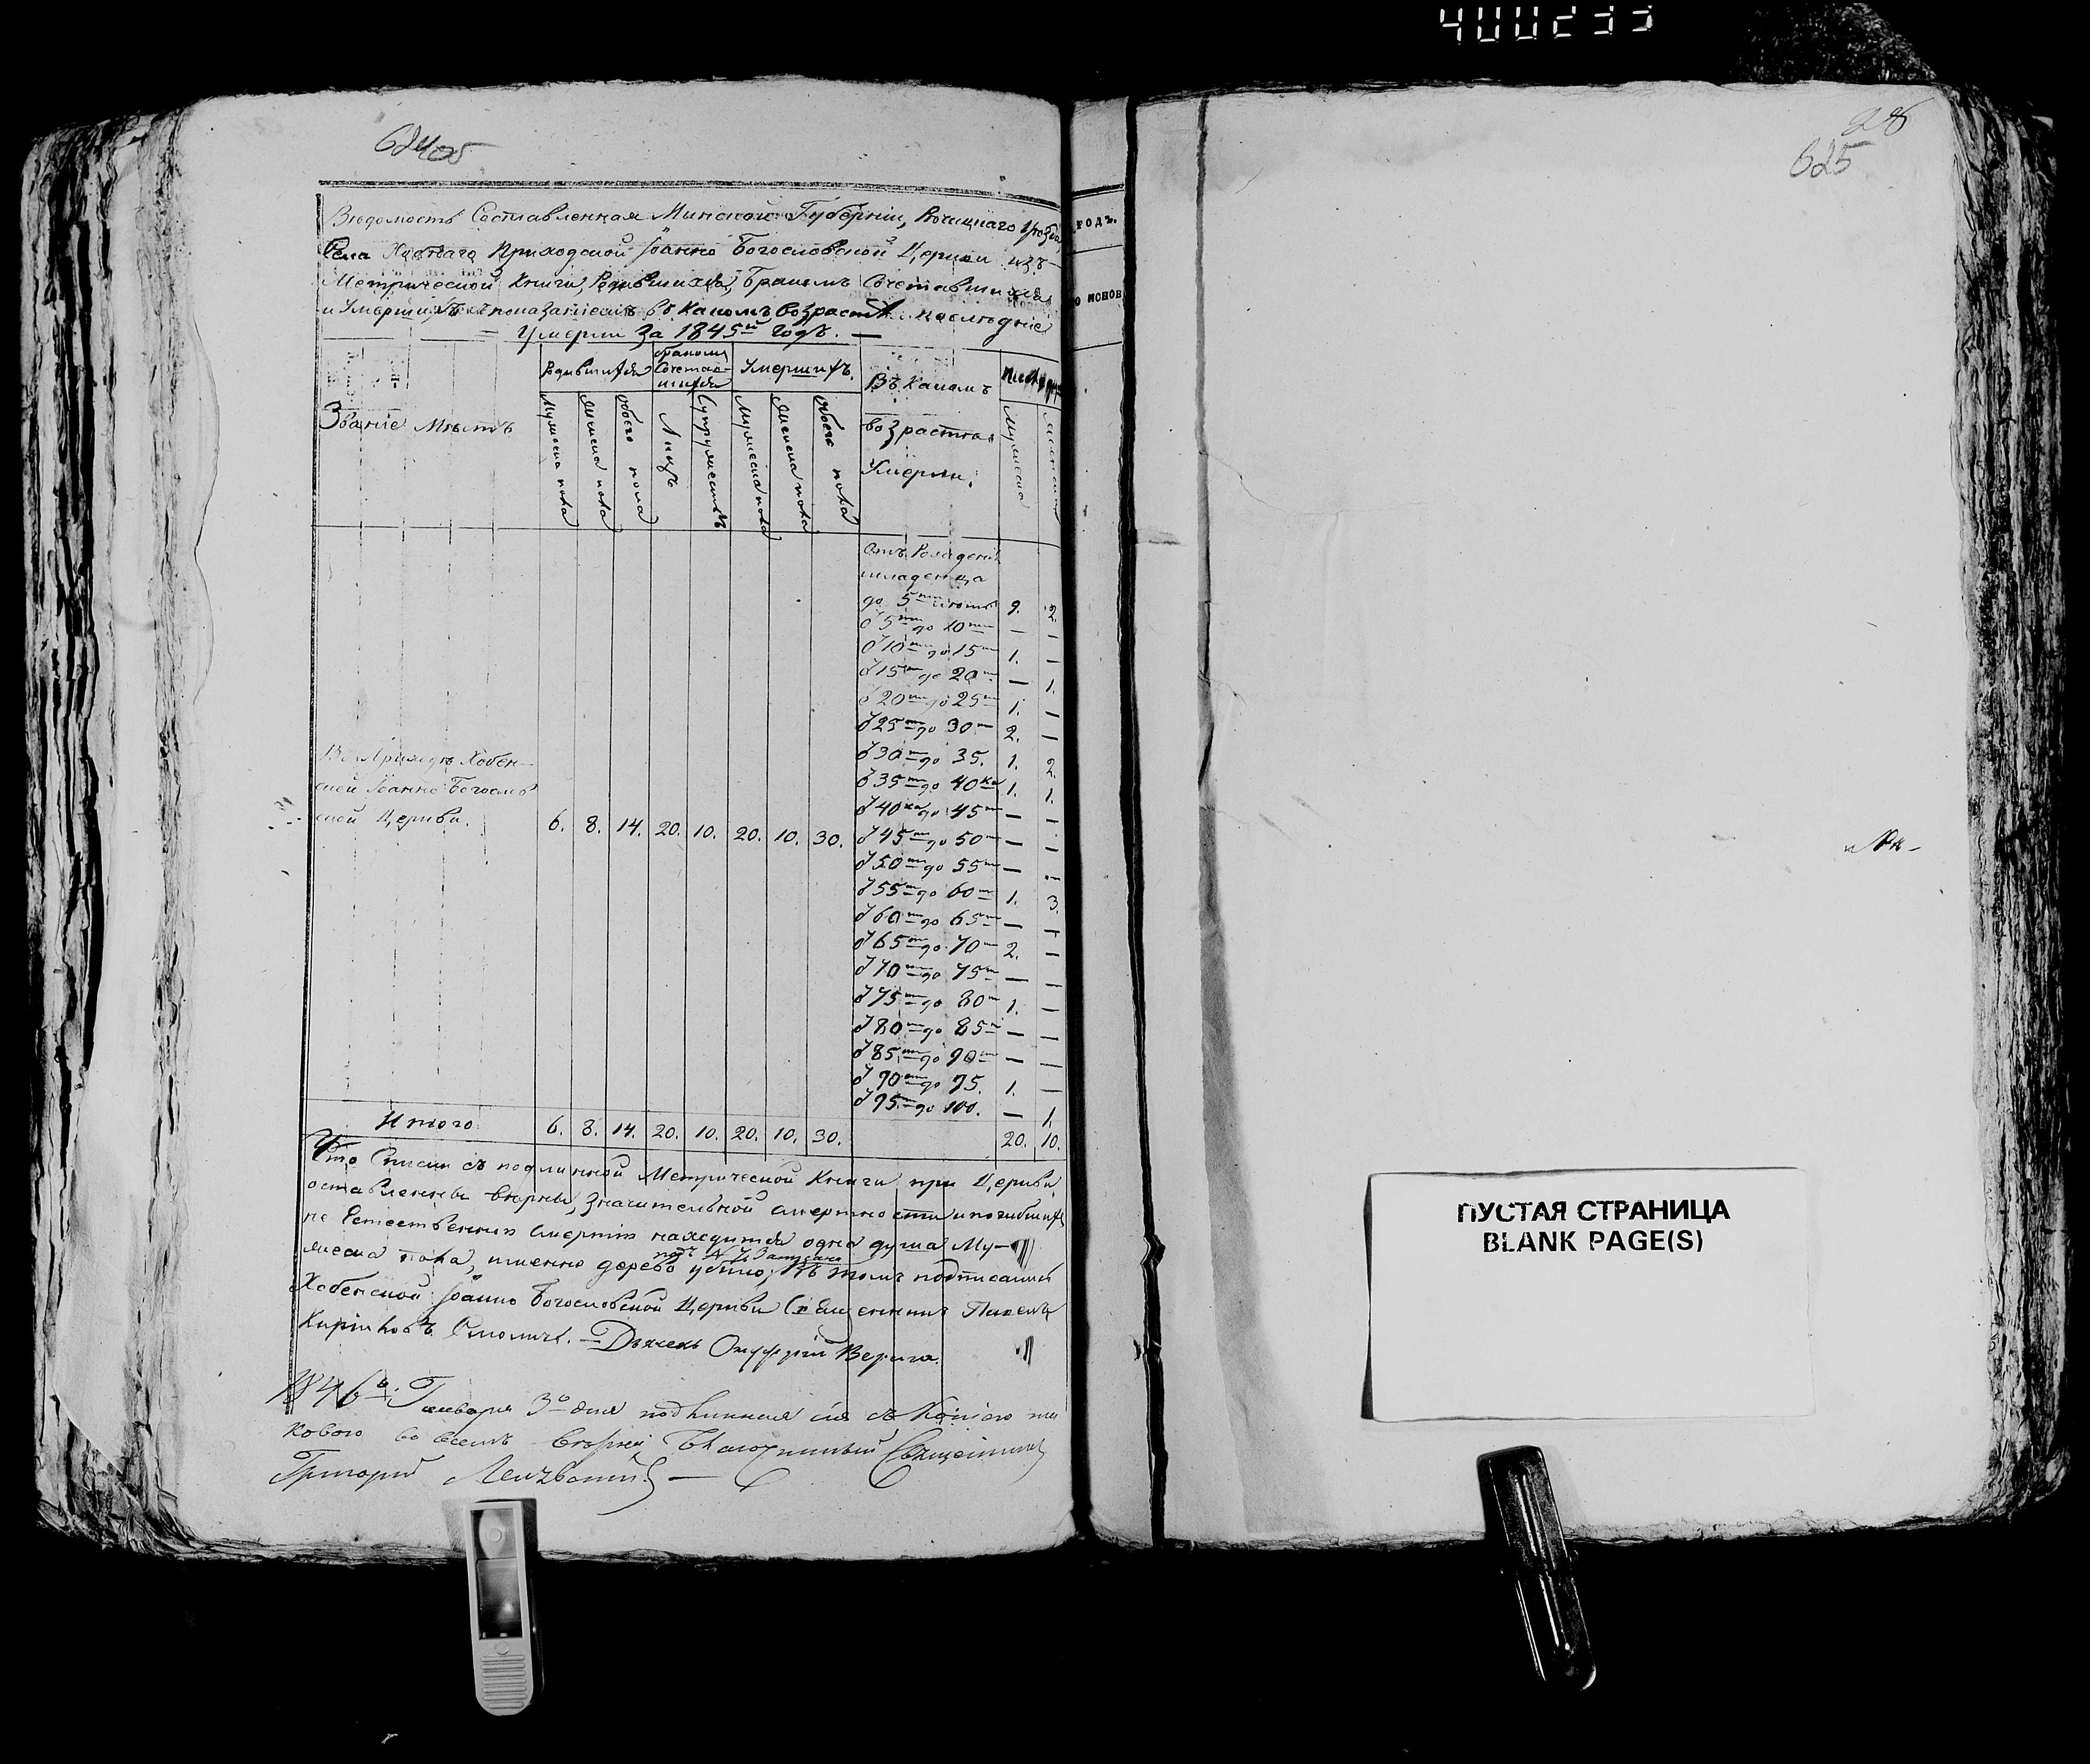 400233
624об
28
625
Вѣдомость Составленная Минской Губерніи, Рѣчицкаго Уѣзда
Села Хобнаго Приходской Іоанно Богословской Церкви изъ
Метрической Книги, Родившихся, Бракомъ Сочетавшихся
и Умершихъ съ показаніемъ въ какомъ возрастѣ послѣдніе
= Умерли за 1845й годъ. —
Званіе Мѣстъ
Родившихся
бракомъ Сочетавшихся
Умершихъ.
Въ какомъ возрастѣ Умерли.
Мужеска пола
Женска пола
обоего пола
Лицъ
Супружествъ
Мужеска пола
Женска пола
Обоего пола
Мужеска
РОДЪ.
О ИСПОВ
Отъ Рожденія
младенца
до 5ти лѣтъ 9. 2.
О 5ти до 10ти — —
О 10ти до 15ти 1. —
О 15ти до 20ти — 1.
О 20ти до 25ти 1. —
О 25ти до 30ти 2. —
О 30ти до 35. 1. 2.
О 35ти до 40ка 1. 1.
О 40ка до 45ти — —
О 45ти до 50ти — —
О 50ти до 55ти — —
О 55ти до 60ти 1. 3.
О 60ти до 65ти — —
О 65ти до 70ти 2. —
О 70ти до 75ти — —
О 75ти до 80ти 1. —
О 80ти до 85ти — —
О 85ти до 90ти — —
О 90ти до 95. 1. —
О 95ти до 100. — 1.
Въ Приходѣ Хобен-
ской Іоанно Богослов
ской Церкви. 6. 8. 14. 20. 10. 20. 10. 30.
Итого 6. 8. 14. 20. 10. 20. 10. 30. 20. 10.
Что Списки съ подлинной Метрической Книги при Церкви
оставленны вѣрны, значительной смертности и погибшихъ
не Естественною Смертію находится одна душа Му-
жеска пола, именно дерево убило; Въ томъ подписались
подъ № 4
Хобенской Іоанно Богословской Церкви Священникъ
Смоличъ. — Дьячекъ Онуфрій Верига.
1846го Генваря 3го дня подлинная сія съ Копіею та
ковою во всемъ вѣрна, Благочинный Священникъ
Григорій
ПУСТАЯ СТРАНИЦА
BLANK PAGE(S)